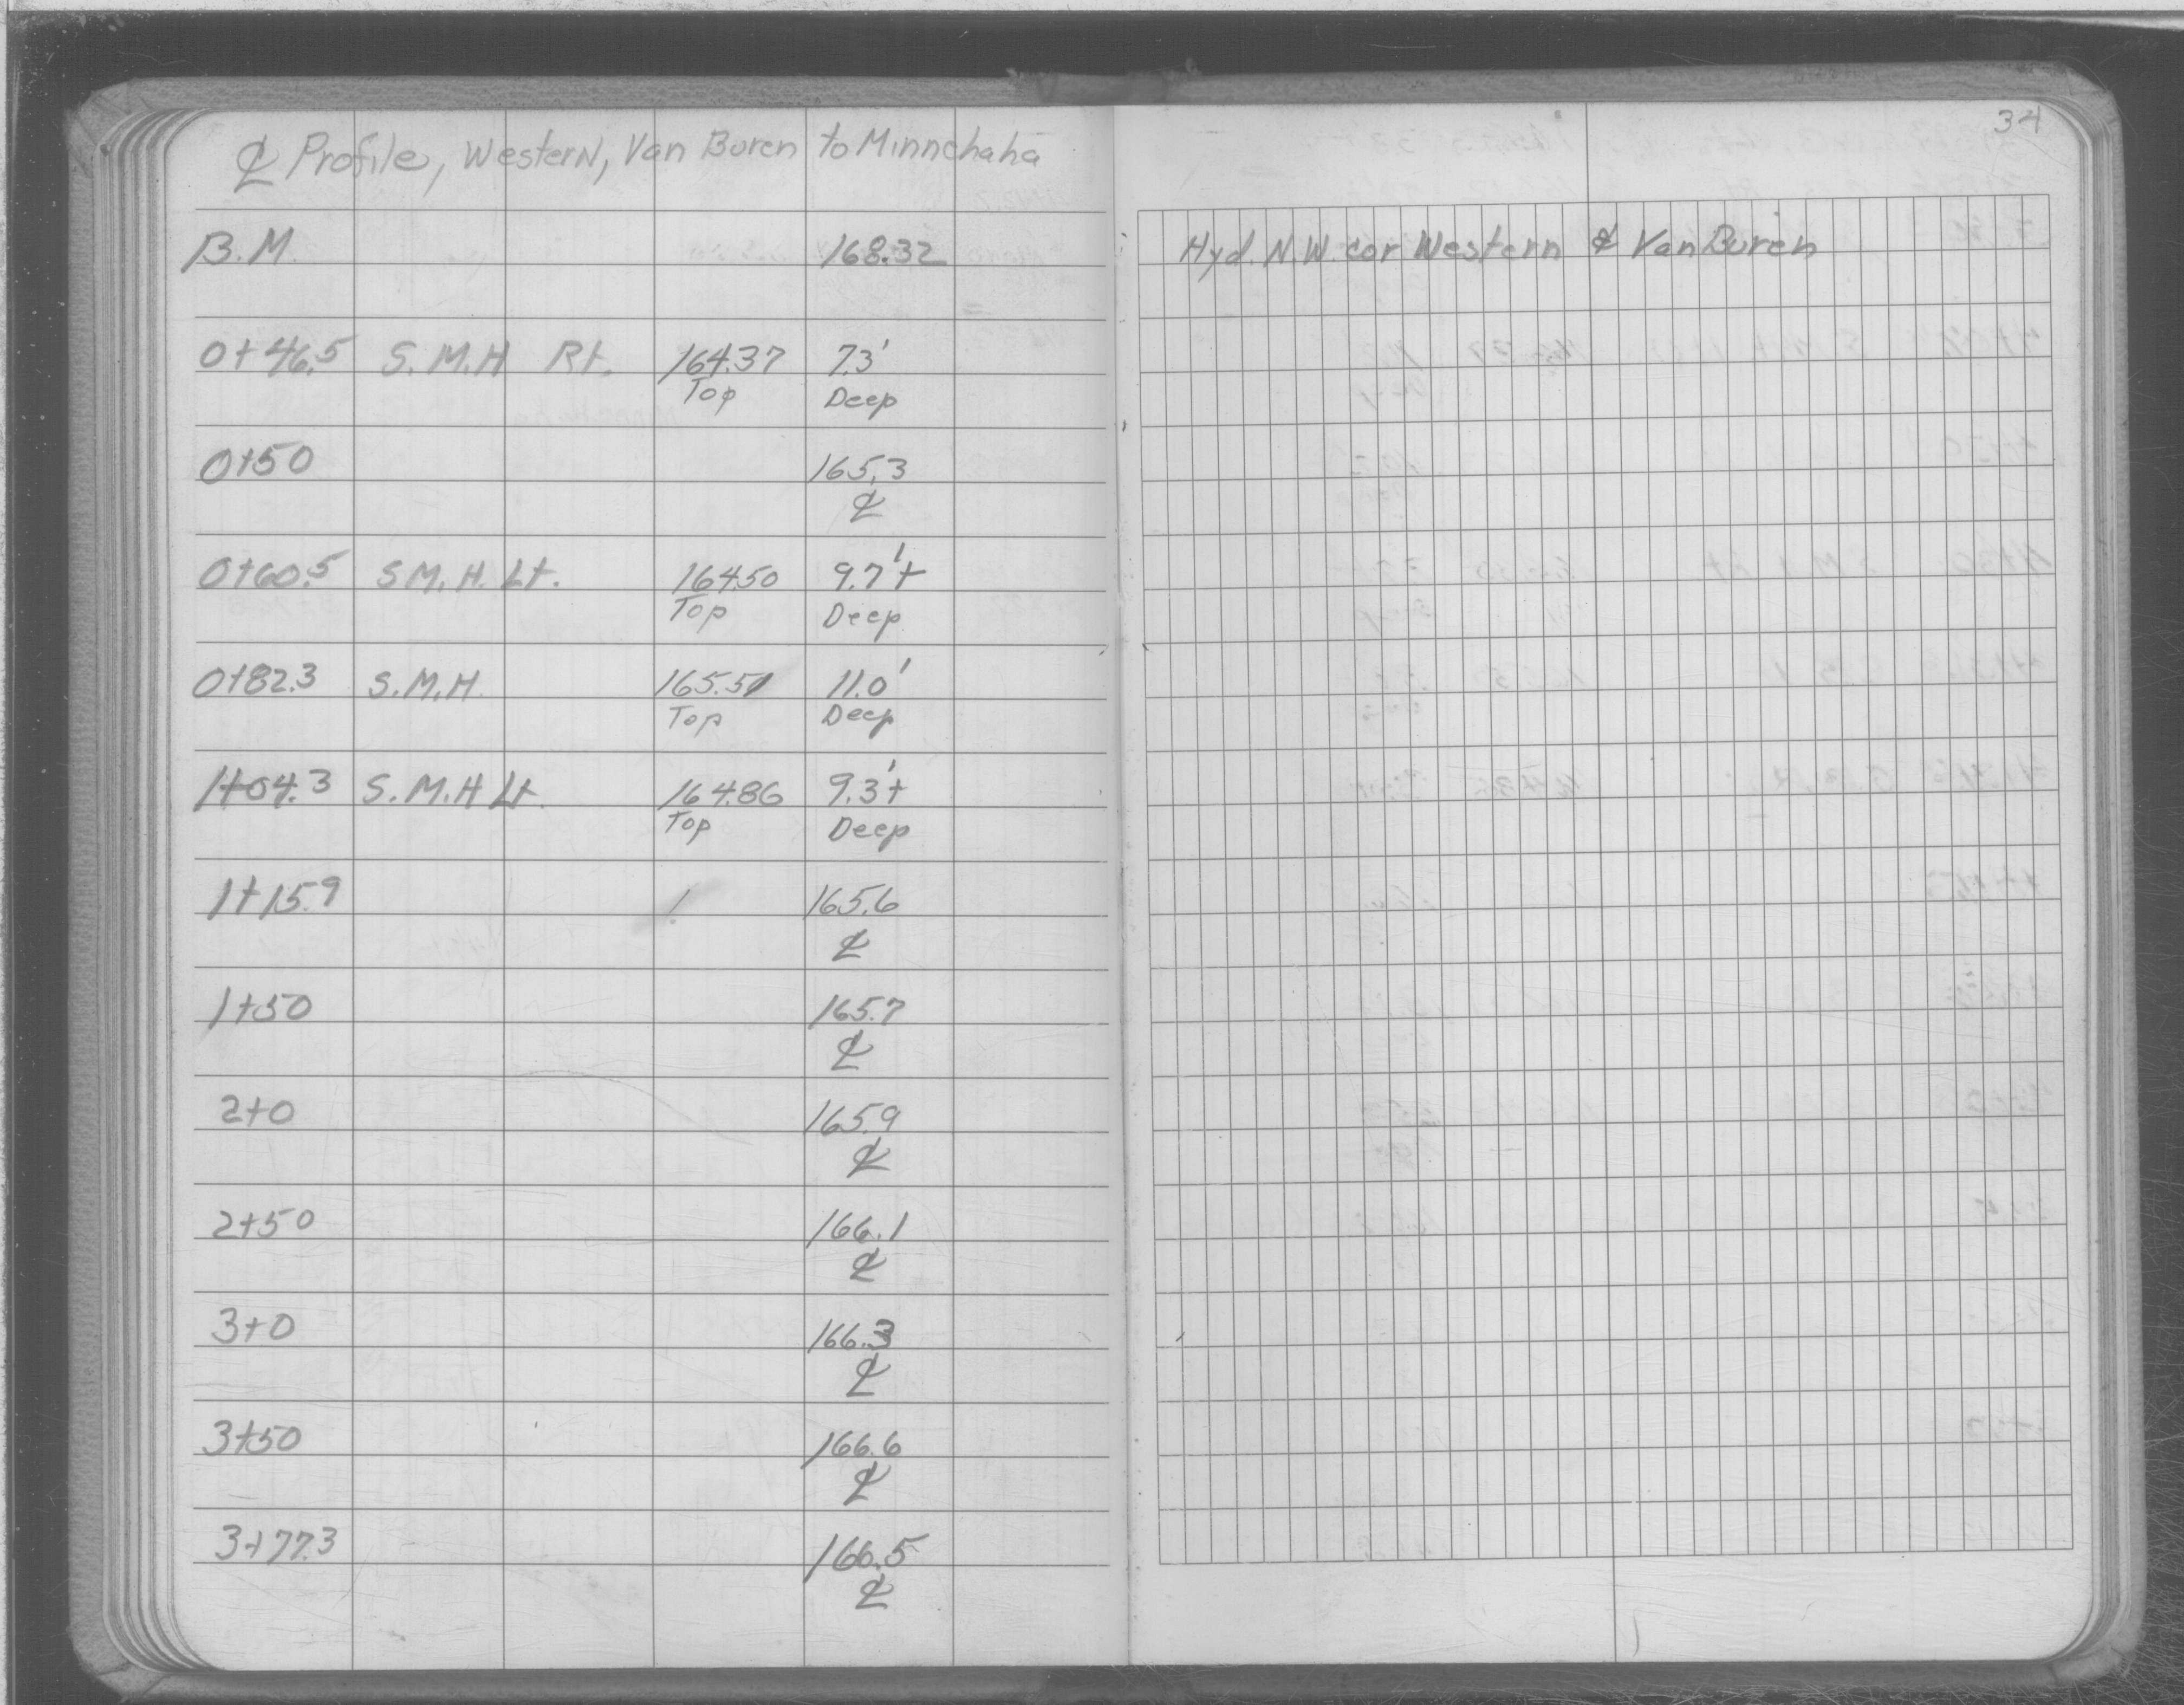 ℄ Profile, Western, Van Buren to Minnehaha
B.M. 168.32
0+46.5 S.M.H Rt. 164.37 7.3'
Top Deep
0+50 165.3
℄
0+60.5 S.M.H. Lt. 164.50 9.7'+
Top Deep
0+82.3 S.M.H. 165.51 11.0'
Top Deep
1+04.3 S.M.H Lt. 164.86 9.3'+
Top Deep
1+15.9 165.6
℄
1+50 165.7
℄
2+0 165.9
℄
2+50 166.1
℄
3+0 166.3
℄
3+50 166.6
℄
3+77.3 166.5
℄
34
Hyd. N.W. cor Western & Van Buren